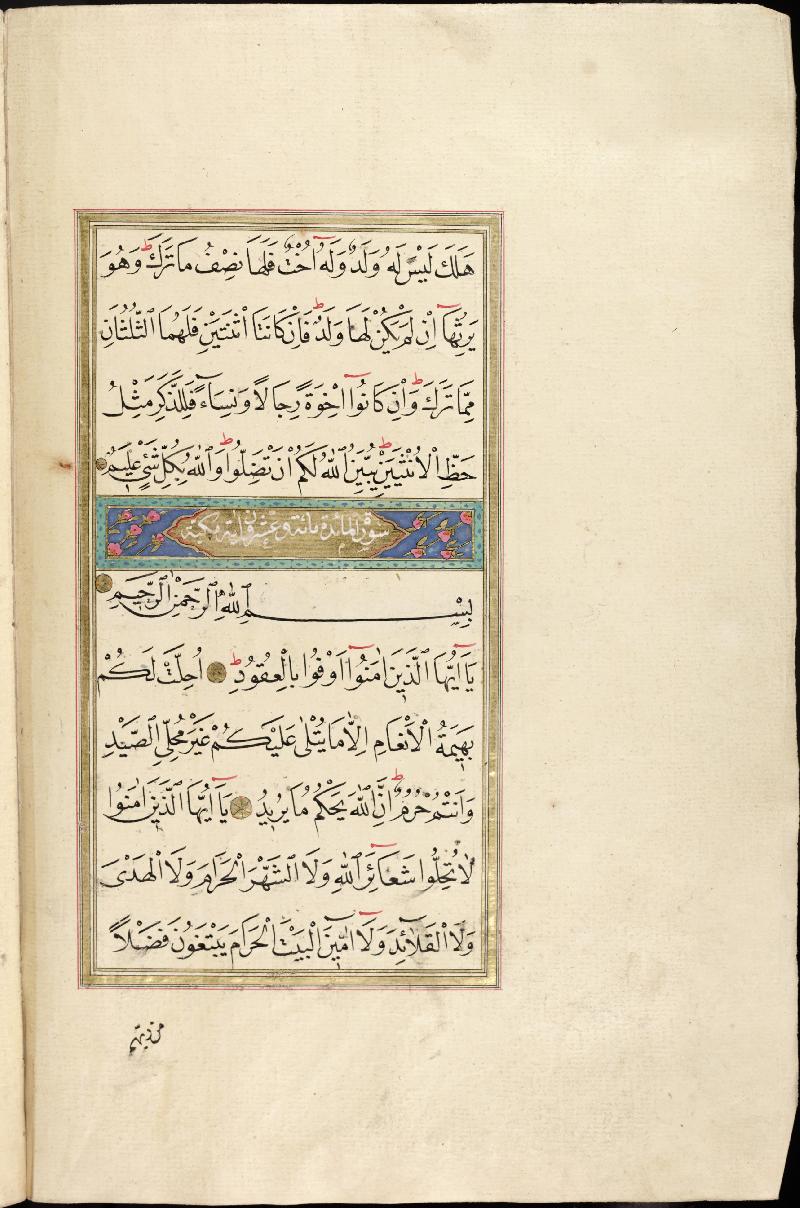 هَلَكَ لَيْسَ لَهُ وَلَدٌ وَلَهُ اُخْتٌ فَلَهَا نِصْفُ مَا تَرَكَ ط وَهُوَ
يَرِثُهَا اِنْ لَمْ يَكُنْ لَهَا وَلَدٌ ط فَاِنْ كَانَتَا اثْنَتَيْنِ فَلَهُمَا الثُّلُثَانِ
مِمَّا تَرَكَ ط وَاِنْ كَانُوا اِخْوَةً رِجَالًا وَنِسَاءً فَلِلذَّكَرِ مِثْلُ
حَظِّ الْاُنْثَيَيْنِ ط يُبَيِّنُ اللّٰهُ لَكُمْ اَنْ تَضِلُّوا ط وَاللّٰهُ بِكُلِّ شَيْءٍ عَلِيمٌ
سورة المائدة مائة وعشرون اية
بِسْمِ اللّٰهِ الرَّحْمٰنِ الرَّحِيمِ
يَا اَيُّهَا الَّذِينَ اٰمَنُوا اَوْفُوا بِالْعُقُودِ ط اُحِلَّتْ لَكُمْ
بَهِيمَةُ الْاَنْعَامِ اِلَّا مَا يُتْلٰى عَلَيْكُمْ غَيْرَ مُحِلِّي الصَّيْدِ
وَاَنْتُمْ حُرُمٌ ط اِنَّ اللّٰهَ يَحْكُمُ مَا يُرِيدُ يَا اَيُّهَا الَّذِينَ اٰمَنُوا
لَا تُحِلُّوا شَعَائِرَ اللّٰهِ وَلَا الشَّهْرَ الْحَرَامَ وَلَا الْهَدْىَ
وَلَا الْقَلَائِدَ وَلَا اٰمِّينَ الْبَيْتَ الْحَرَامَ يَبْتَغُونَ فَضْلًا
من ربهم